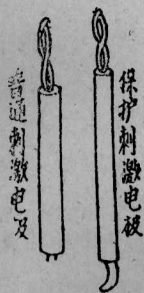 普通刺激电极
保护刺激电极